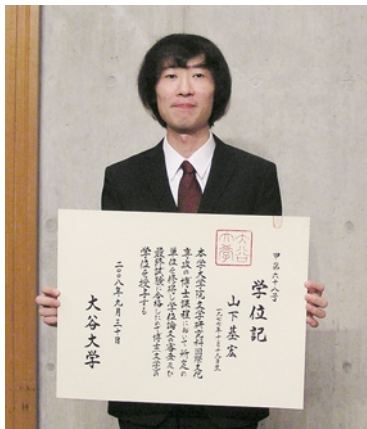 甲第六十八号
学位記
山下基宏
一九七七年十月十九日生
本学大学院文学研究科国際文化
専攻の博士課程において所定の
単位を修得し学位論文の審査及び
最終試験に合格したので博士(文学)の
学位を授与する
二〇〇八年九月三十日
大谷大学